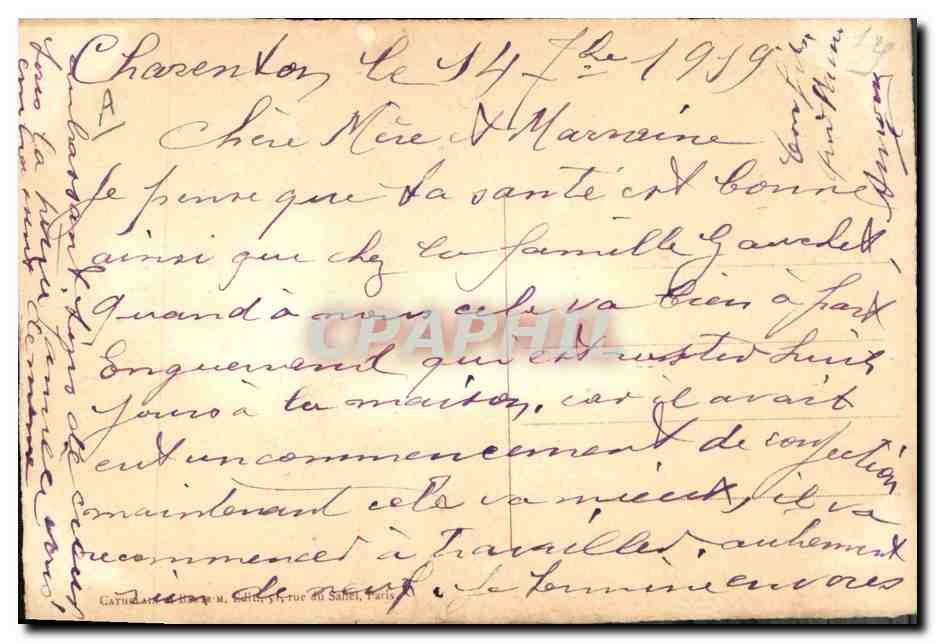 Charenton le 14 7bre 1919
Chère Mère et Marraine
Je pense que ta santé est bonne
ainsi que chez la famille Gauchet,
Quand à nous cela va bien à part
Enguerrand qui est rester huit
jours à la maison, car il avait
eut un commencement de confection
maintenant cela va mieux, il va
recommencer à travailler. autrement
rien de neuf. Je termine en vous
embrassant bien de cœur
Tous la petite famille à vous,
CPAPHIL
Edit., rue du Sahel, Paris